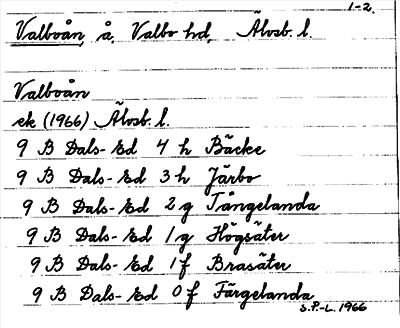 1-2.
Valboån, å, Valbo hd, Älvsb. l.
Valboån
ek (1966) Älvsb. l.
9 B Dals-Ed 4 h Bäcke
9 B Dals-Ed 3 h Järbo
9 B Dals-Ed 2 g Tångelanda
9 B Dals-Ed 1 g Högsäter
9 B Dals-Ed 1 f Brasäter
9 B Dals-Ed 0 f Färgelanda
S.P.-L. 1966